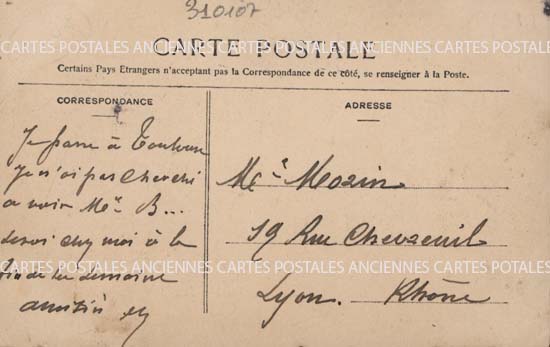 310107
CARTE POSTALE
CARTES POSTALES ANCIENNES CARTES POSTALES ANCIENNES CARTES POSTALES
Certains Pays Etrangers n'acceptant pas la Correspondance de ce côté, se renseigner à la Poste.
CORRESPONDANCE
Je passe à Toulouse
Je n'ai pas cherché
a voir Me B...
serai chez moi à la
fin de la semaine
amitiés
ADRESSE
Mr Mozin
19 Rue Chevreuil
CARTES POSTALES ANCIENNES CARTES POSTALES ANCIENNES CARTES POTALES
Lyon. Rhône